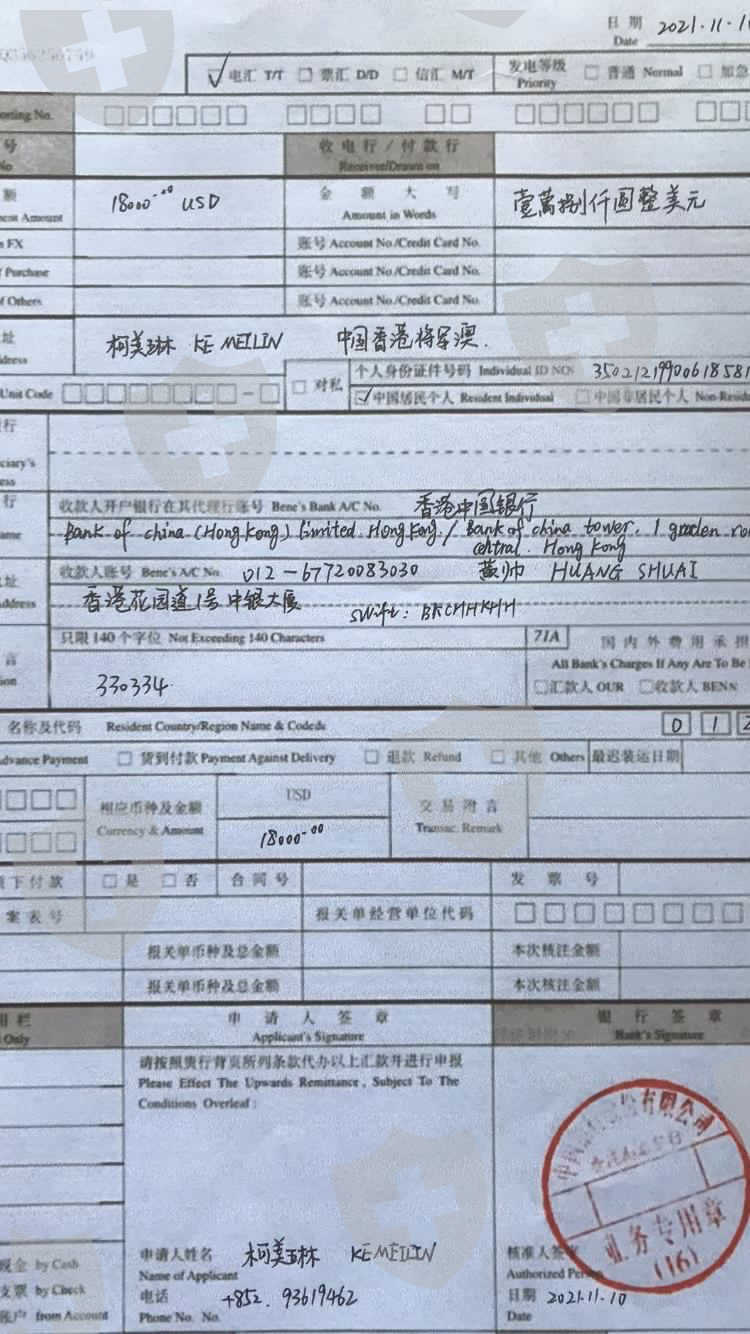 日期
Date 2021.11.1
电汇 T/T 票汇 D/D 信汇 M/T 发电等级 Priority 普通 Normal 加急
No.
号 收电行/付款行
No Receiver/Drawn on
额 18000-00 USD 金额大写 壹萬捌仟圆整美元
Amount Amount in Words
FX 账号 Account No./Credit Card No.
Purchase 账号 Account No./Credit Card No.
Others 账号 Account No./Credit Card No.
址 柯美琳 KE MEILIN 中国香港将军澳.
对私 个人身份证件号码 Individual ID NO. 35021219900618581
Unit Code 中国居民个人 Resident Individual 中国非居民个人 Non-Resid
行
ciary's
行 收款人开户银行在其代理行账号 Bene's Bank A/C No. 香港中国银行
ame Bank of china (Hong Kong) limited. Hong Kong / Bank of china tower. 1 graden ro
central. Hong Kong
址 收款人账号 Bene's A/C No. 012-67720083030 黄帅 HUANG SHUAI
ddress 香港花园道1号中银大厦 swift: BKCHHKHH
只限140个字位 Not Exceeding 140 Characters 71A 国内外费用承担
言 All Bank's Charges If Any Are To Be
ion 330334 汇款人 OUR 收款人 BENN
名称及代码 Resident Country/Region Name & Codeds 0 1 2
dvance Payment 货到付款 Payment Against Delivery 退款 Refund 其他 Others 最迟装运日期
相应币种及金额 USD 交易附言
Currency & Amount 18000-00 Transac. Remark
下付款 是 否 合同号 发票号
案表号 报关单经营单位代码
报关单币种及总金额 本次核注金额
报关单币种及总金额 本次核注金额
用栏 申请人签章 银行签章
Only Applicant's Signature Bank's Signature
请按照贵行背页所列条款代办以上汇款并进行申报
Please Effect The Upwards Remittance, Subject To The
Conditions Overleaf:
有限公司
业务专用章
(16)
现金 by Cash 申请人姓名 柯美琳 KE MEILIN 核准人签
Name of Applicant Authorized Person
支票 by Check 电话 +852. 93619462 日期 2021.11.10
账户 from Account Phone No. No. Date